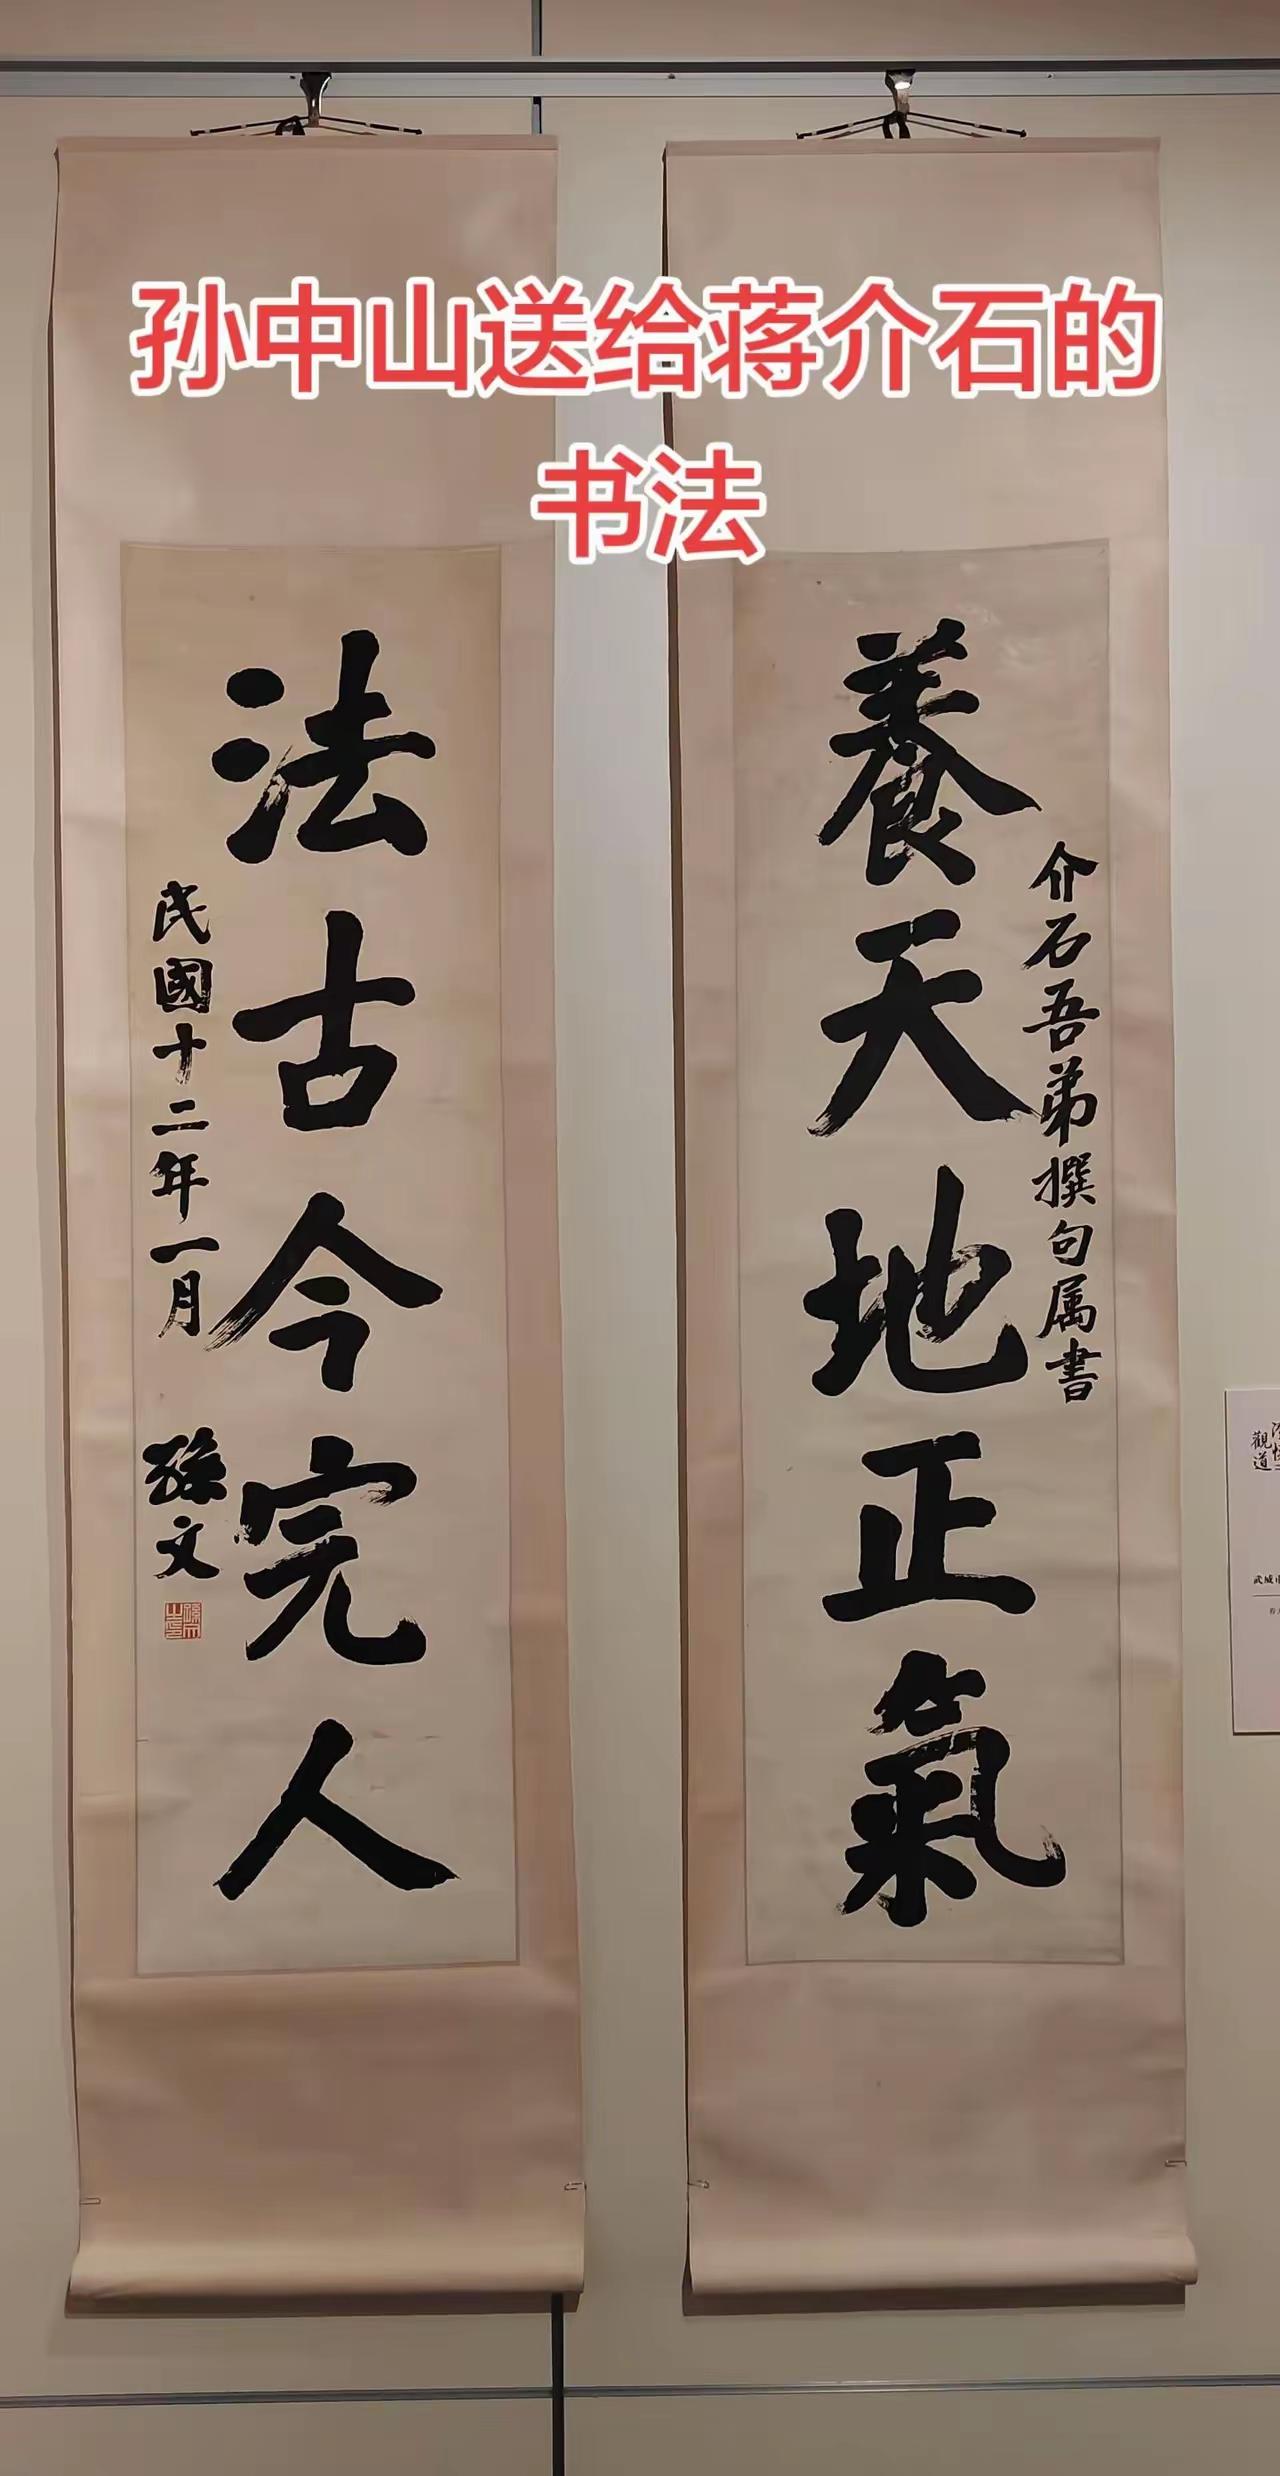 孙中山送给蒋介石的
书法
介石吾弟撰句属書
養天地正氣
法古今完人
民國十二年一月
孫文
孫文之印
觀道